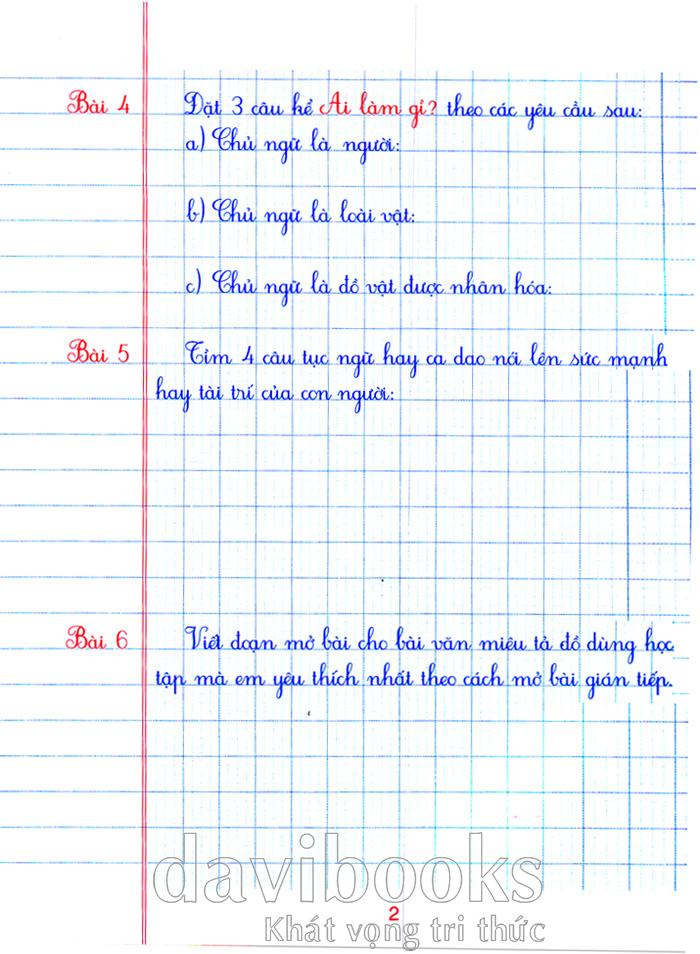 Bài 4 Đặt 3 câu kể Ai làm gì? theo các yêu cầu sau:
a) Chủ ngữ là người:
b) Chủ ngữ là loài vật:
c) Chủ ngữ là đồ vật được nhân hóa:
Bài 5 Tìm 4 câu tục ngữ hay ca dao nói lên sức mạnh
hay tài trí của con người:
Bài 6 Viết đoạn mở bài cho bài văn miêu tả đồ dùng học
tập mà em yêu thích nhất theo cách mở bài gián tiếp.
davibooks
2
Khát vọng tri thức